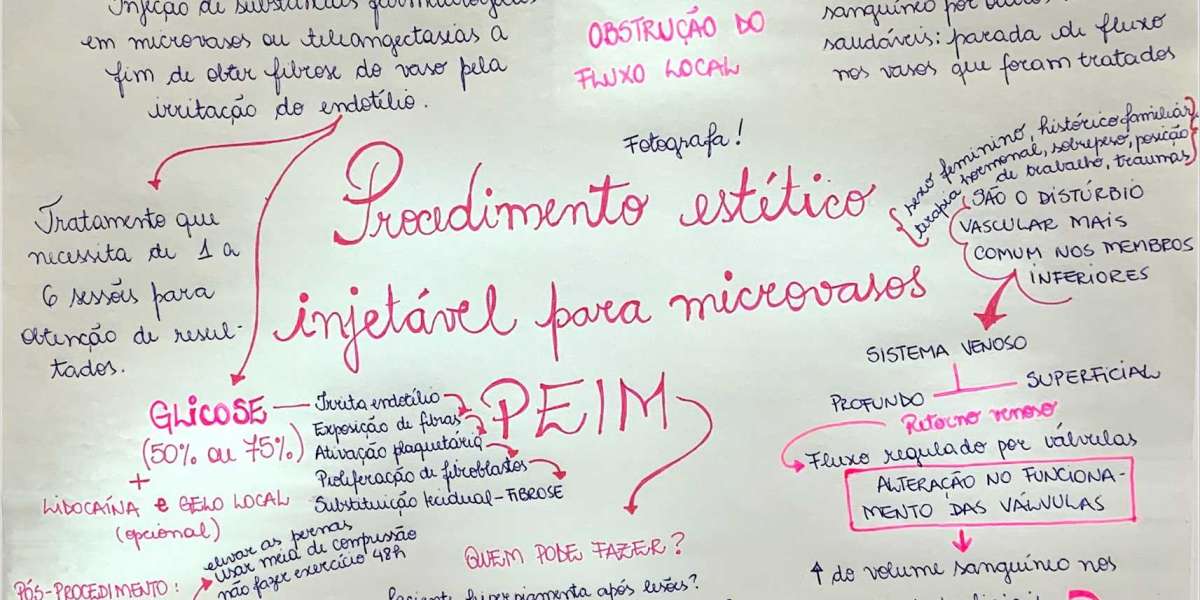 Injeção de substâncias
em microvasos ou teleangectasias a
fim de obter fibrose do vaso pela
irritação do endotélio.
OBSTRUÇÃO DO
FLUXO LOCAL
sanguíneo por
saudáveis: parada de fluxo
nos vasos que foram tratados
Fotografa!
Procedimento estético
injetável para microvasos
PEIM
Tratamento que
necessita de 1 a
6 sessões para
obtenção de resul-
tados.
GLICOSE
(50% ou 75%)
+
LIDOCAÍNA e GELO LOCAL
(opcional)
Irrita endotélio
Exposição de fibras
Ativação plaquetária
Proliferação de fibroblastos
Substituição tecidual - FIBROSE
PÓS-PROCEDIMENTO:
elevar as pernas
usar meia de compressão
não fazer exercício 48h
QUEM PODE FAZER?
Paciente hiperpigmenta após lesões?
sexo feminino, histórico familiar,
terapia hormonal, sobrepeso, posição
de trabalho, traumas
SÃO O DISTÚRBIO
VASCULAR MAIS
COMUM NOS MEMBROS
INFERIORES
SISTEMA VENOSO
SUPERFICIAL
PROFUNDO
Retorno venoso
Fluxo regulado por válvulas
ALTERAÇÃO NO FUNCIONA-
MENTO DAS VÁLVULAS
↑ do volume sanguíneo nos